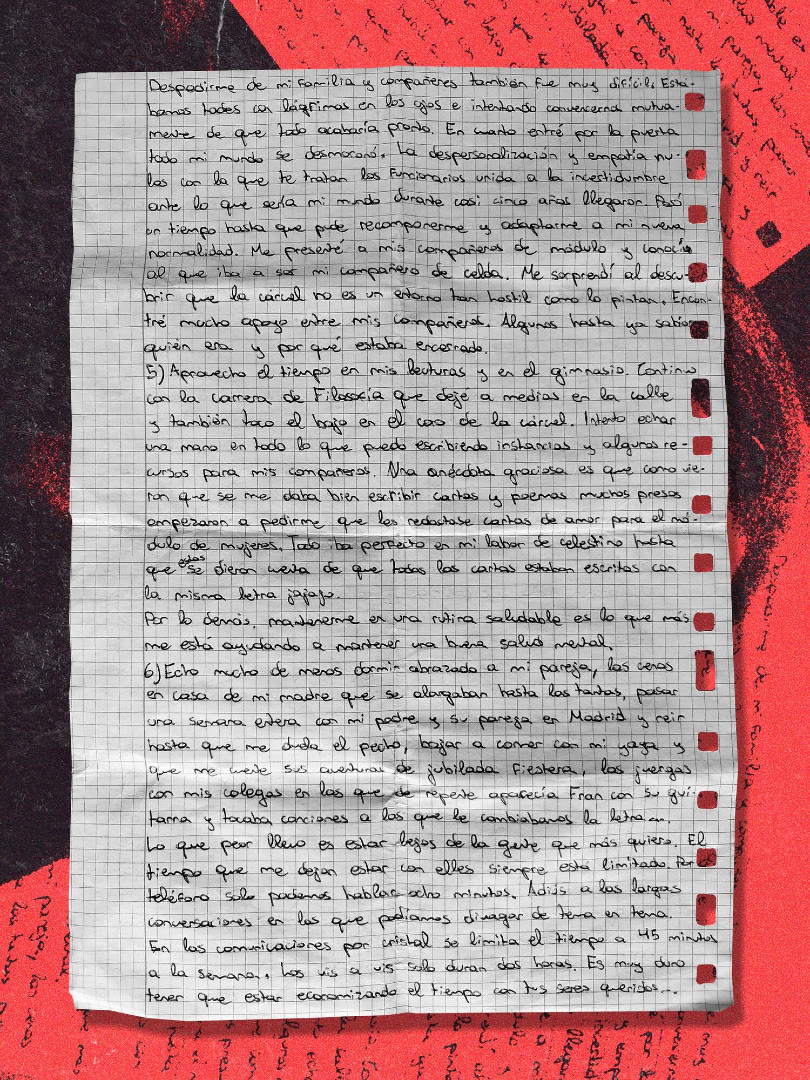 Despedirme de mi familia y compañeres también fue muy difícil. Está-
bamos todes con lágrimas en los ojos e intentando convencernos mutua-
mente de que todo acabaría pronto. En cuanto entré por la puerta
todo mi mundo se desmoronó. La despersonalización y empatía nu-
las con la que te tratan los funcionarios unida a la incertidumbre
ante lo que sería mi mundo durante casi cinco años llegaron. Pasó
un tiempo hasta que pude recomponerme y adaptarme a mi nueva
normalidad. Me presenté a mis compañeros de módulo y conocía
al que iba a ser mi compañero de celda. Me sorprendí al descu-
brir que la cárcel no es un entorno tan hostil como lo pintan. Encon-
tré mucho apoyo entre mis compañeros. Algunos hasta ya sabían
quién era y por qué estaba encerrado.
5) Aprovecho el tiempo en mis lecturas y en el gimnasio. Continuo
con la carrera de Filosofía que dejé a medias en la calle
y también toco el bajo en el coro de la cárcel. Intento echar
una mano en todo lo que puedo escribiendo instancias y algunos re-
cursos para mis compañeros. Una anécdota graciosa es que como vie-
ron que se me daba bien escribir cartas y poemas muchos presos
empezaron a pedirme que les redactase cartas de amor para el mó-
dulo de mujeres. Todo iba perfecto en mi labor de celestino hasta
que estas se dieron cuenta de que todas las cartas estaban escritas con
la misma letra jajaja.
Por lo demás, mantenerme en una rutina saludable es lo que más
me está ayudando a mantener una buena salud mental.
6) Echo mucho de menos dormir abrazado a mi pareja, las cenas
en casa de mi madre que se alargaban hasta las tantas, pasar
una semana entera con mi padre y su pareja en Madrid y reir
hasta que me duela el pecho, bajar a comer con mi yaya y
que me cuente sus aventuras de jubilada fiestera, las juergas
con mis colegas en las que de repente aparecía Fran con su gui-
tarra y tocaba canciones a los que le cambiabamos la letra...
Lo que peor llevo es estar lejos de la gente que más quiero. El
tiempo que me dejan estar con elles siempre está limitado. Por
teléfono solo podemos hablar ocho minutos. Adiós a las largas
conversaciones en las que podíamos divagar de tema en tema.
En las comunicaciones por cristal se limita el tiempo a 45 minutos
a la semana. Los vis a vis solo duran dos horas. Es muy duro
tener que estar economizando el tiempo con tus seres queridos...